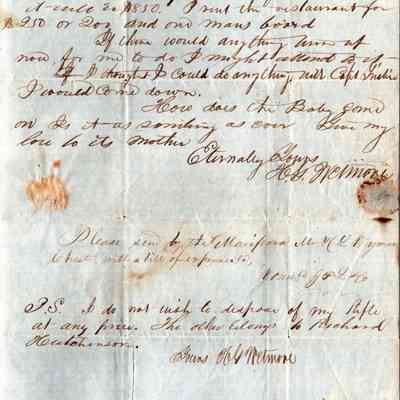 it will be $850. I rent the restaurant for
$250 or 200 and one mans board
If there would anything turn up
now for me to do I might attend to it
If I thought I could do anything with Capt
I would come down.
How does the Baby come
on Is it as smiling as ever Give my
love to its Mother
Eternaley Yours
H. G. Wetmore
Please send by A. S. Mariposa
to best with a bill of expenses
Yours
P.S. I do not wish to dispose of my Rifle
at any price. The other belongs to Richard
Hutchinson.
Yours H G Wetmore